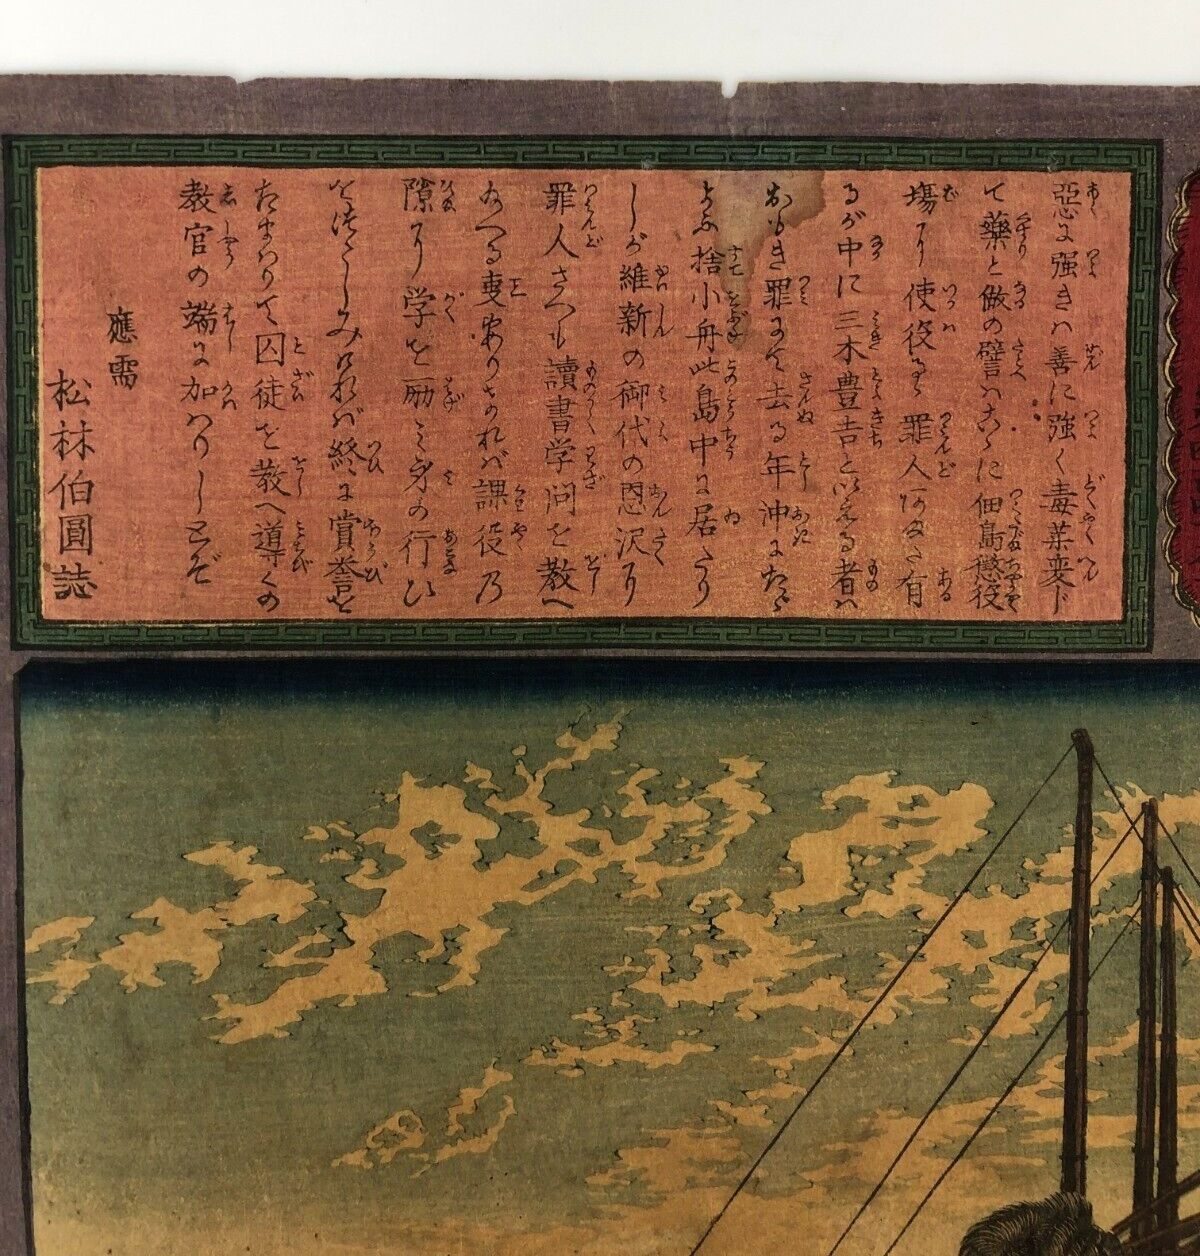 惡に强きハ善に強く毒薬変じ
て藥と做の譬ハこゝに佃島懲役
場に使役るゝ罪人何ある有
るが中に三木豊吉といへる者ハ
おもき罪にて去る年沖はな
よふ捨小舟此島中に居たり
しが維新の御代の恩沢に
罪人さへも讀書学问を教へ
玉へる事ありされバ課役乃
隙に学を励ミ身の行ひ
をつゝしみけれバ終に賞誉を
たまハりて囚徒を教へ導くの
教官の端に加ハりしとぞ
應需
松林伯圓誌